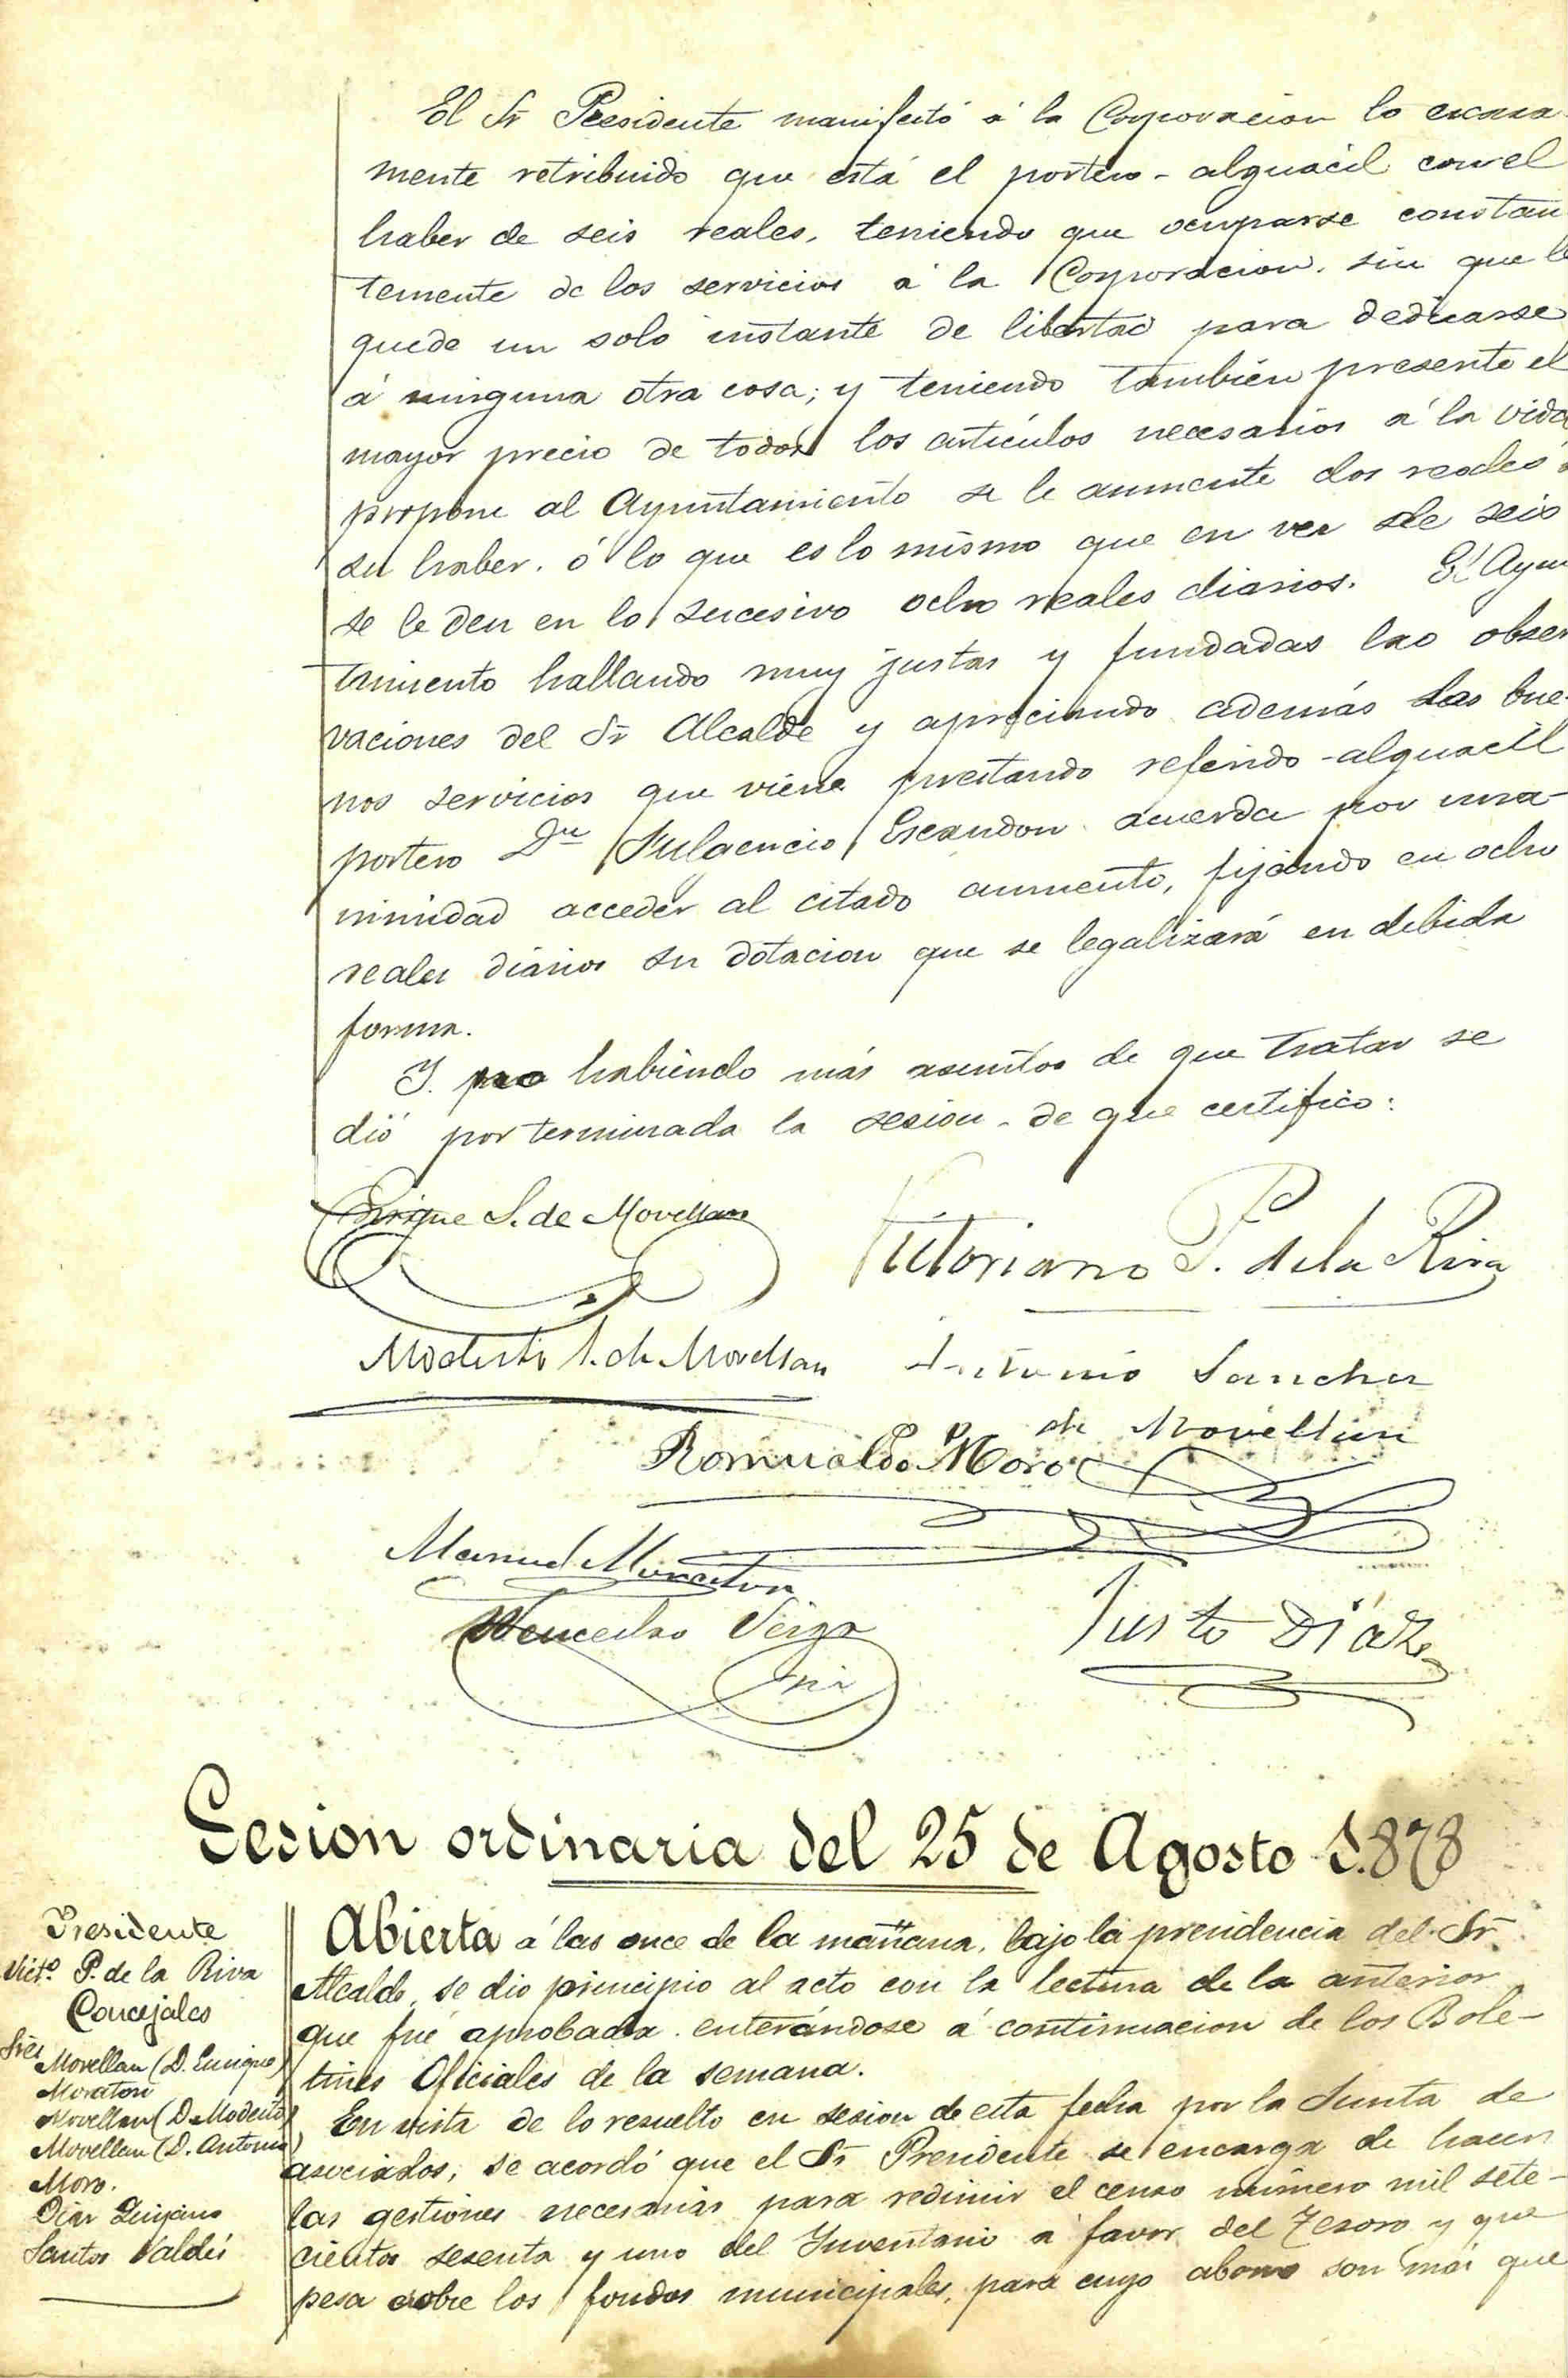 El Sr Presidente manifestó á la Corporacion lo escasa-
mente retribuido que está el portero-alguacil con el
haber de seis reales, teniendo que ocuparse constan
temente de los servicios á la Corporacion, sin que le
quede un solo instante de libertad para dedicarse
á ninguna otra cosa; y teniendo tambien presente el
mayor precio de todos los artículos necesarios á la vida
propone al Ayuntamiento se le aumente dos reales á
su haber, ó lo que es lo mismo que en vez de seis
se le den en lo sucesivo ocho reales diarios. El Ayun
tamiento hallando muy justas y fundadas las obser
vaciones del Sr Alcalde y apreciando además las bue-
nos servicios que viene prestando referido-alguacil
portero Dn Fulgencio Escandon acuerda por una-
nimidad acceder al citado aumento, fijando en ocho
reales diarios su dotacion que se legalizará en debida
forma.
Y no habiendo más asuntos de que tratar se
dió por terminada la sesion, de que certifico:
Enrique S. de Movellan
Victoriano P. de la Riva
Modesto S. de Movellan
Antonio Sanchez
de Movellan
Romualdo Moro
Manuel Moraton
Wenceslao
Justo Diaz
Sesion ordinaria del 25 de Agosto 1.878
Presidente
Victº P. de la Riva
Concejales
Sres
Movellan (D. Enrique)
Moraton
Movellan (D. Modesto)
Movellan (D. Antonio)
Moro.
Diaz Quijano
Santos Valdés
Abierta á las once de la mañana, bajo la presidencia del Sr
Alcalde, se dio principio al acto con la lectura de la anterior
que fué aprobada, enterándose á continuacion de los Bole-
tines Oficiales de la semana.
En vista de lo resuelto en sesion de esta fecha por la Junta de
asociados, se acordó que el Sr Presidente se encarga de hacer
las gestiones necesarias para redimir el censo número mil sete-
cientos sesenta y uno del Inventario á favor del Tesoro y que
pesa sobre los fondos municipales, para cuyo abono son más que